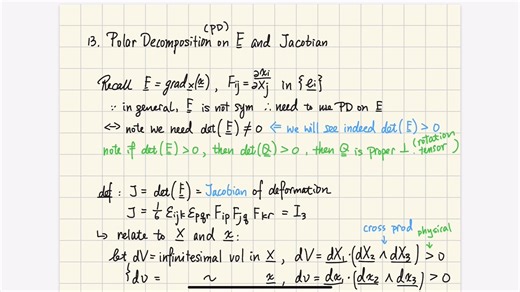 (PD)
13. Polar Decomposition on F and Jacobian
Recall F = grad_X(x), Fij = ∂xi/∂Xj in {ei}
∵ in general, F is not sym ∴ need to use PD on F
⇔ note we need det(F) ≠ 0 ⇐ we will see indeed det(F) > 0
note if det(F) > 0, then det(Q) > 0, then Q is proper ⊥ (rotation tensor)
def: J = det(F) = Jacobian of deformation
J = 1/6 εijk εpqr Fip Fjq Fkr = I3
↳ relate to X and x: cross prod physical
let dV = infinitesimal vol in X, dV = dX1 · (dX2 ∧ dX3) > 0
{ dv = ~ x, dv = dx1 · (dx2 ∧ dx3) > 0